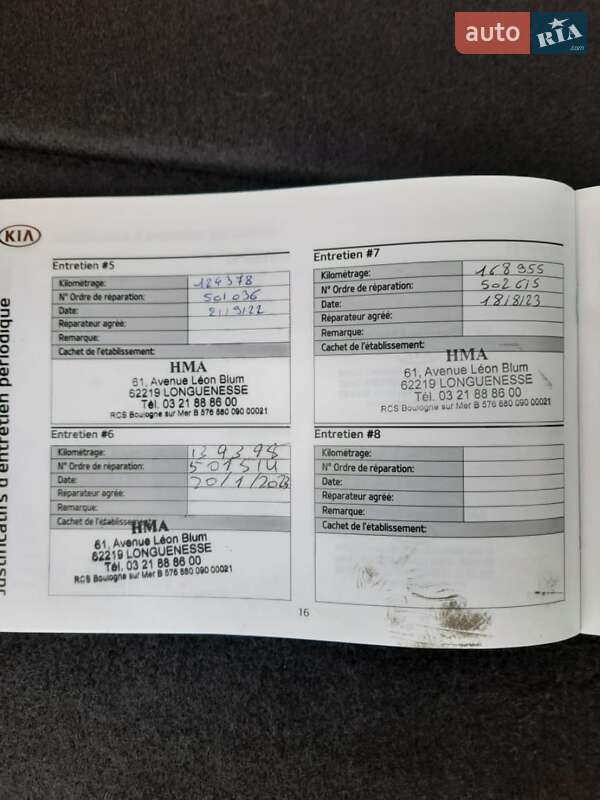 auto RIA .com
KIA
Justificatifs d'entretien périodique
Entretien #5
Kilométrage: 124378
N° Ordre de réparation: 501036
Date: 21/9/22
Réparateur agréé:
Remarque:
Cachet de l'établissement:
HMA
61, Avenue Léon Blum
62219 LONGUENESSE
Tél. 03 21 88 86 00
RCS Boulogne sur Mer B 576 880 090 00021
Entretien #6
Kilométrage: 139398
N° Ordre de réparation:
Date: 20/1/2023
Réparateur agréé:
Remarque:
Cachet de l'établissement:
HMA
61, Avenue Léon Blum
62219 LONGUENESSE
Tél. 03 21 88 86 00
RCS Boulogne sur Mer B 576 880 090 00021
Entretien #7
Kilométrage: 168955
N° Ordre de réparation: 502615
Date: 18/8/23
Réparateur agréé:
Remarque:
Cachet de l'établissement:
HMA
61, Avenue Léon Blum
62219 LONGUENESSE
Tél. 03 21 88 86 00
RCS Boulogne sur Mer B 576 880 090 00021
Entretien #8
Kilométrage:
N° Ordre de réparation:
Date:
Réparateur agréé:
Remarque:
Cachet de l'établissement:
16